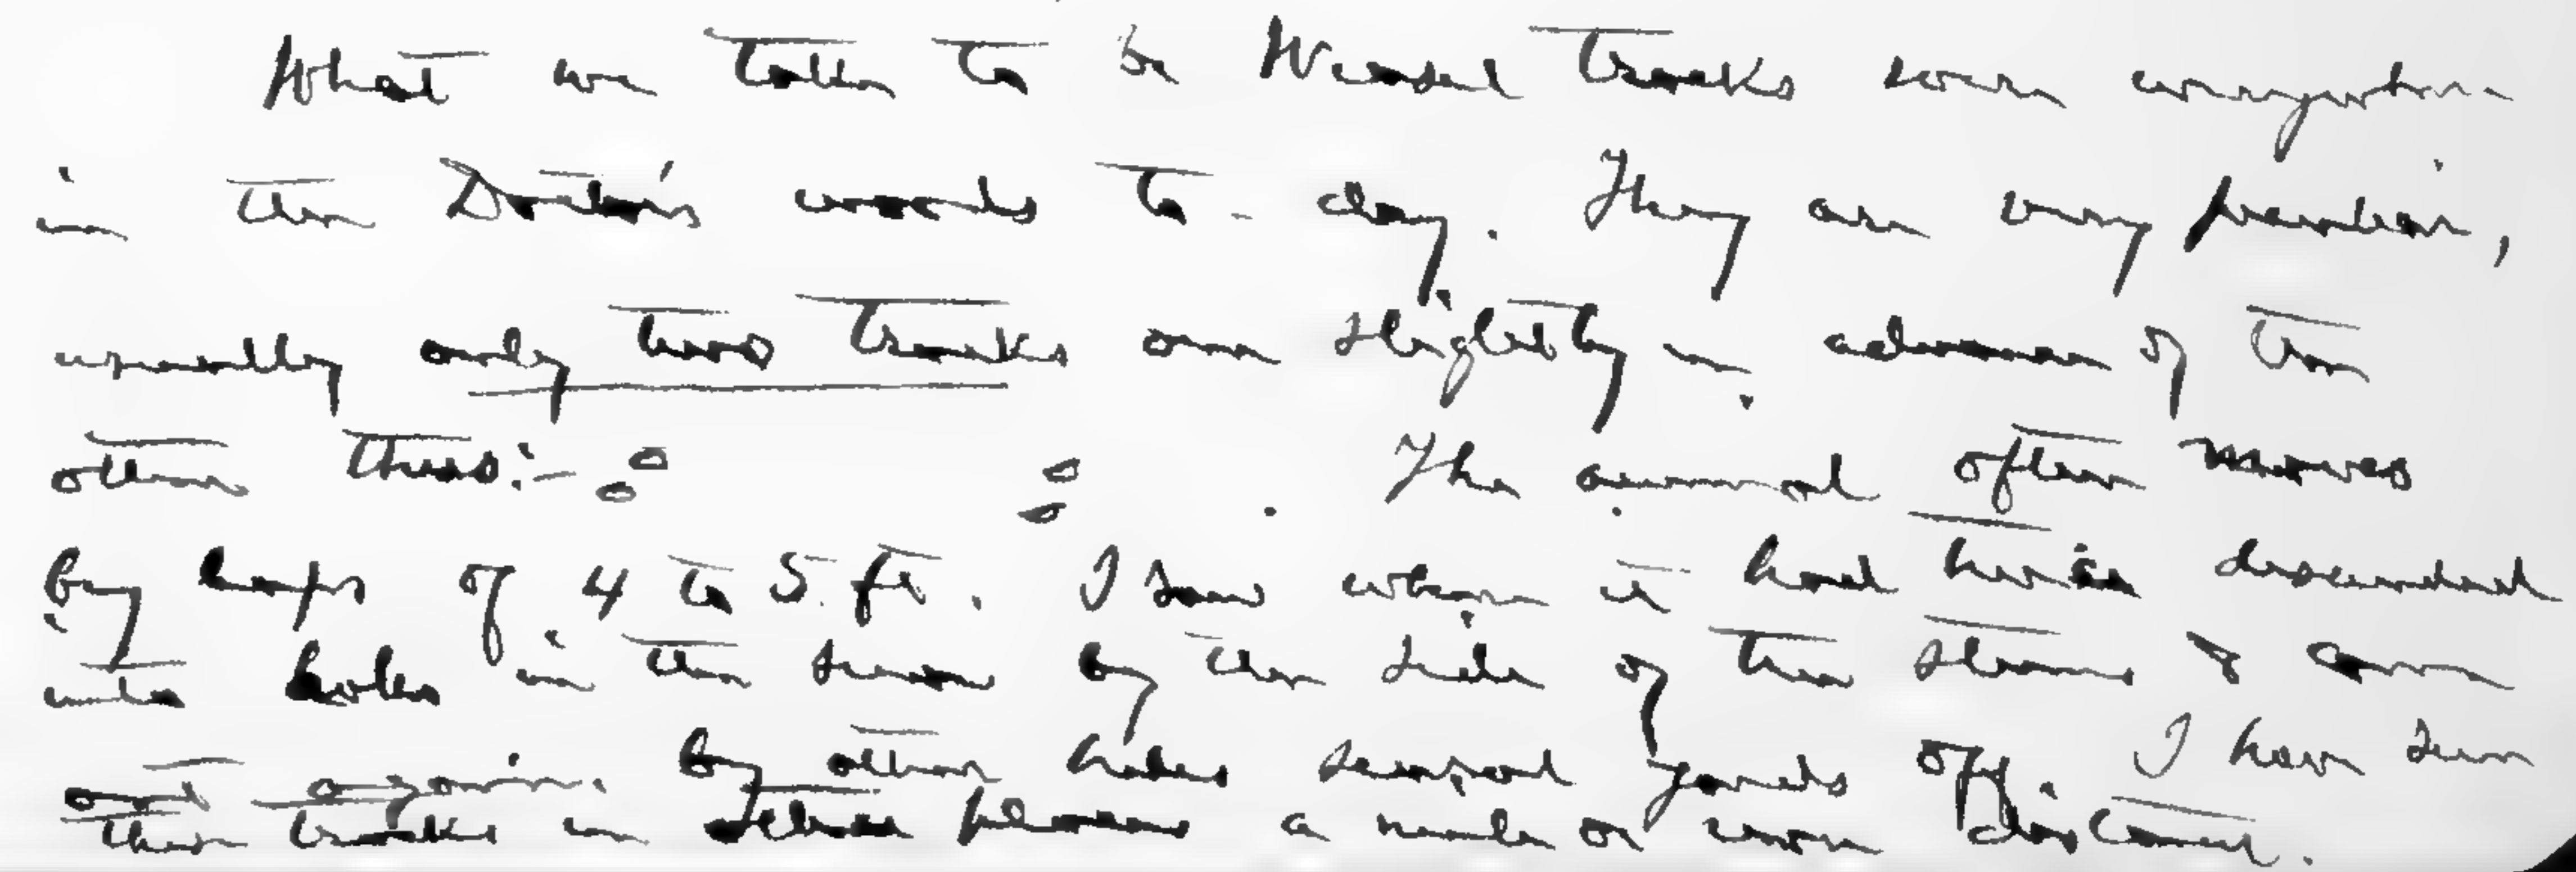 What we taken to be Weasel tracks were everywhere
in the Doctor's woods to-day. They are very peculiar,
usually only two tracks one slightly in advance of the
other thus:-     . The animal often moves
by leaps of 4 to 5 ft. I saw where it had twice descended
into holes in the snow by the side of the stems & come
out again by other holes several yards off. I have seen
these tracks in other places a mile or more distant.